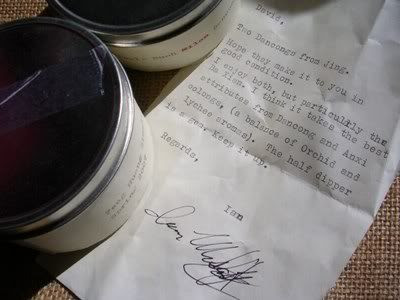 David,
Two Dancongs from Jing.
Hope they make it to you in
good condition.
I enjoy both, but particularly the
Da Xian. I think it takes the best
attributes from Dancong and Anxi
oolongs, (a balance of Orchid and
lychee aromas). The half dipper
is a gem. Keep it up.
Regards,
Ian
Ian
Spring